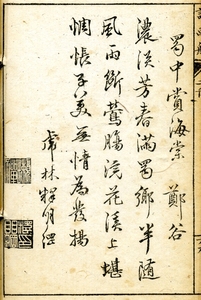 蜀中賞海棠 鄭谷
濃淡芳春滿蜀鄉半隨
風雨斷鶯腸浣花溪上堪
惆悵子美無情為發揚
虎林釋明綱